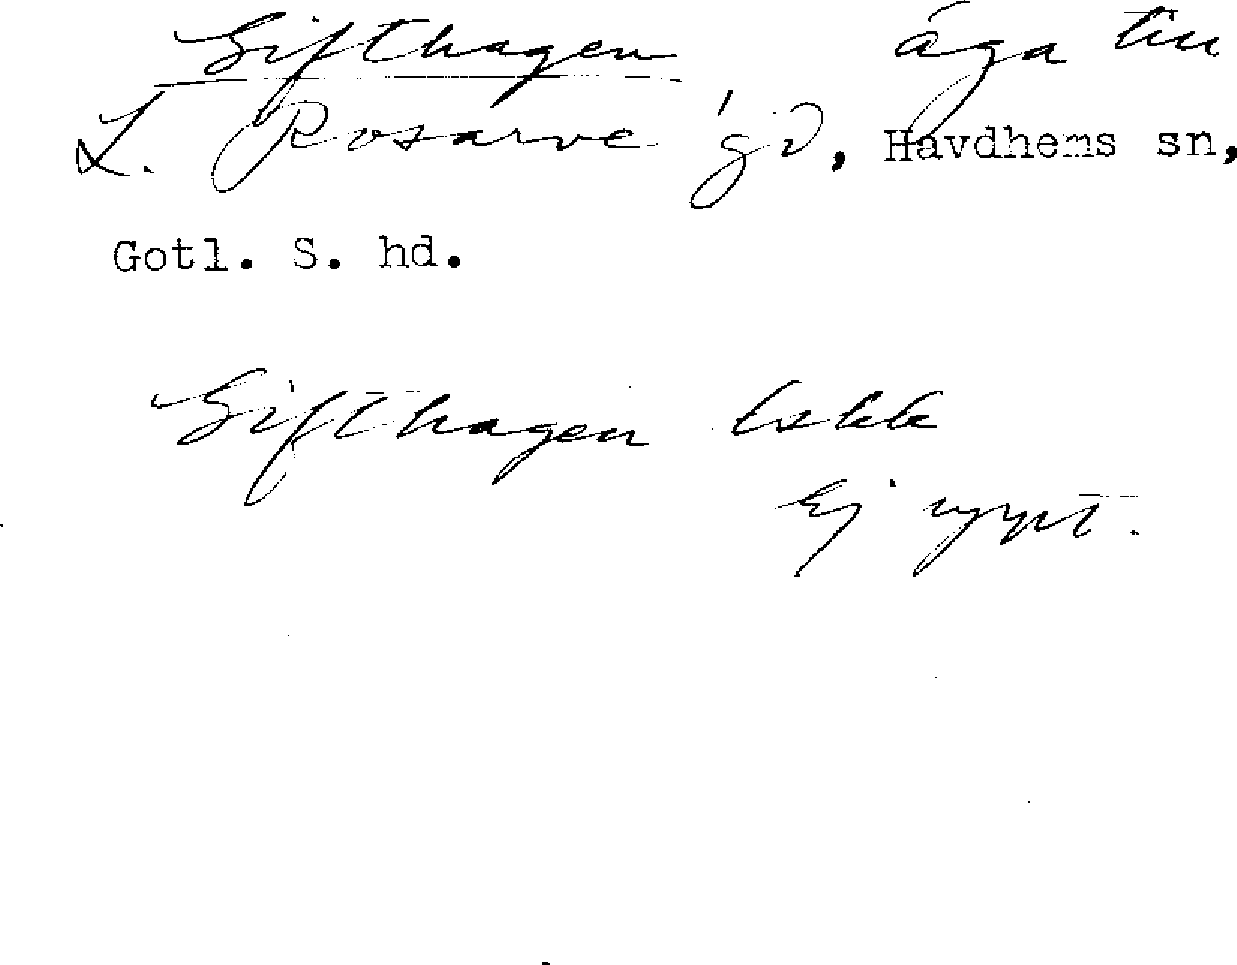 Gifthagen äga till
L. Rosarve gd, Havdhems sn,
Gotl. S. hd.
Gifthagen Lskk
Ej uppt.